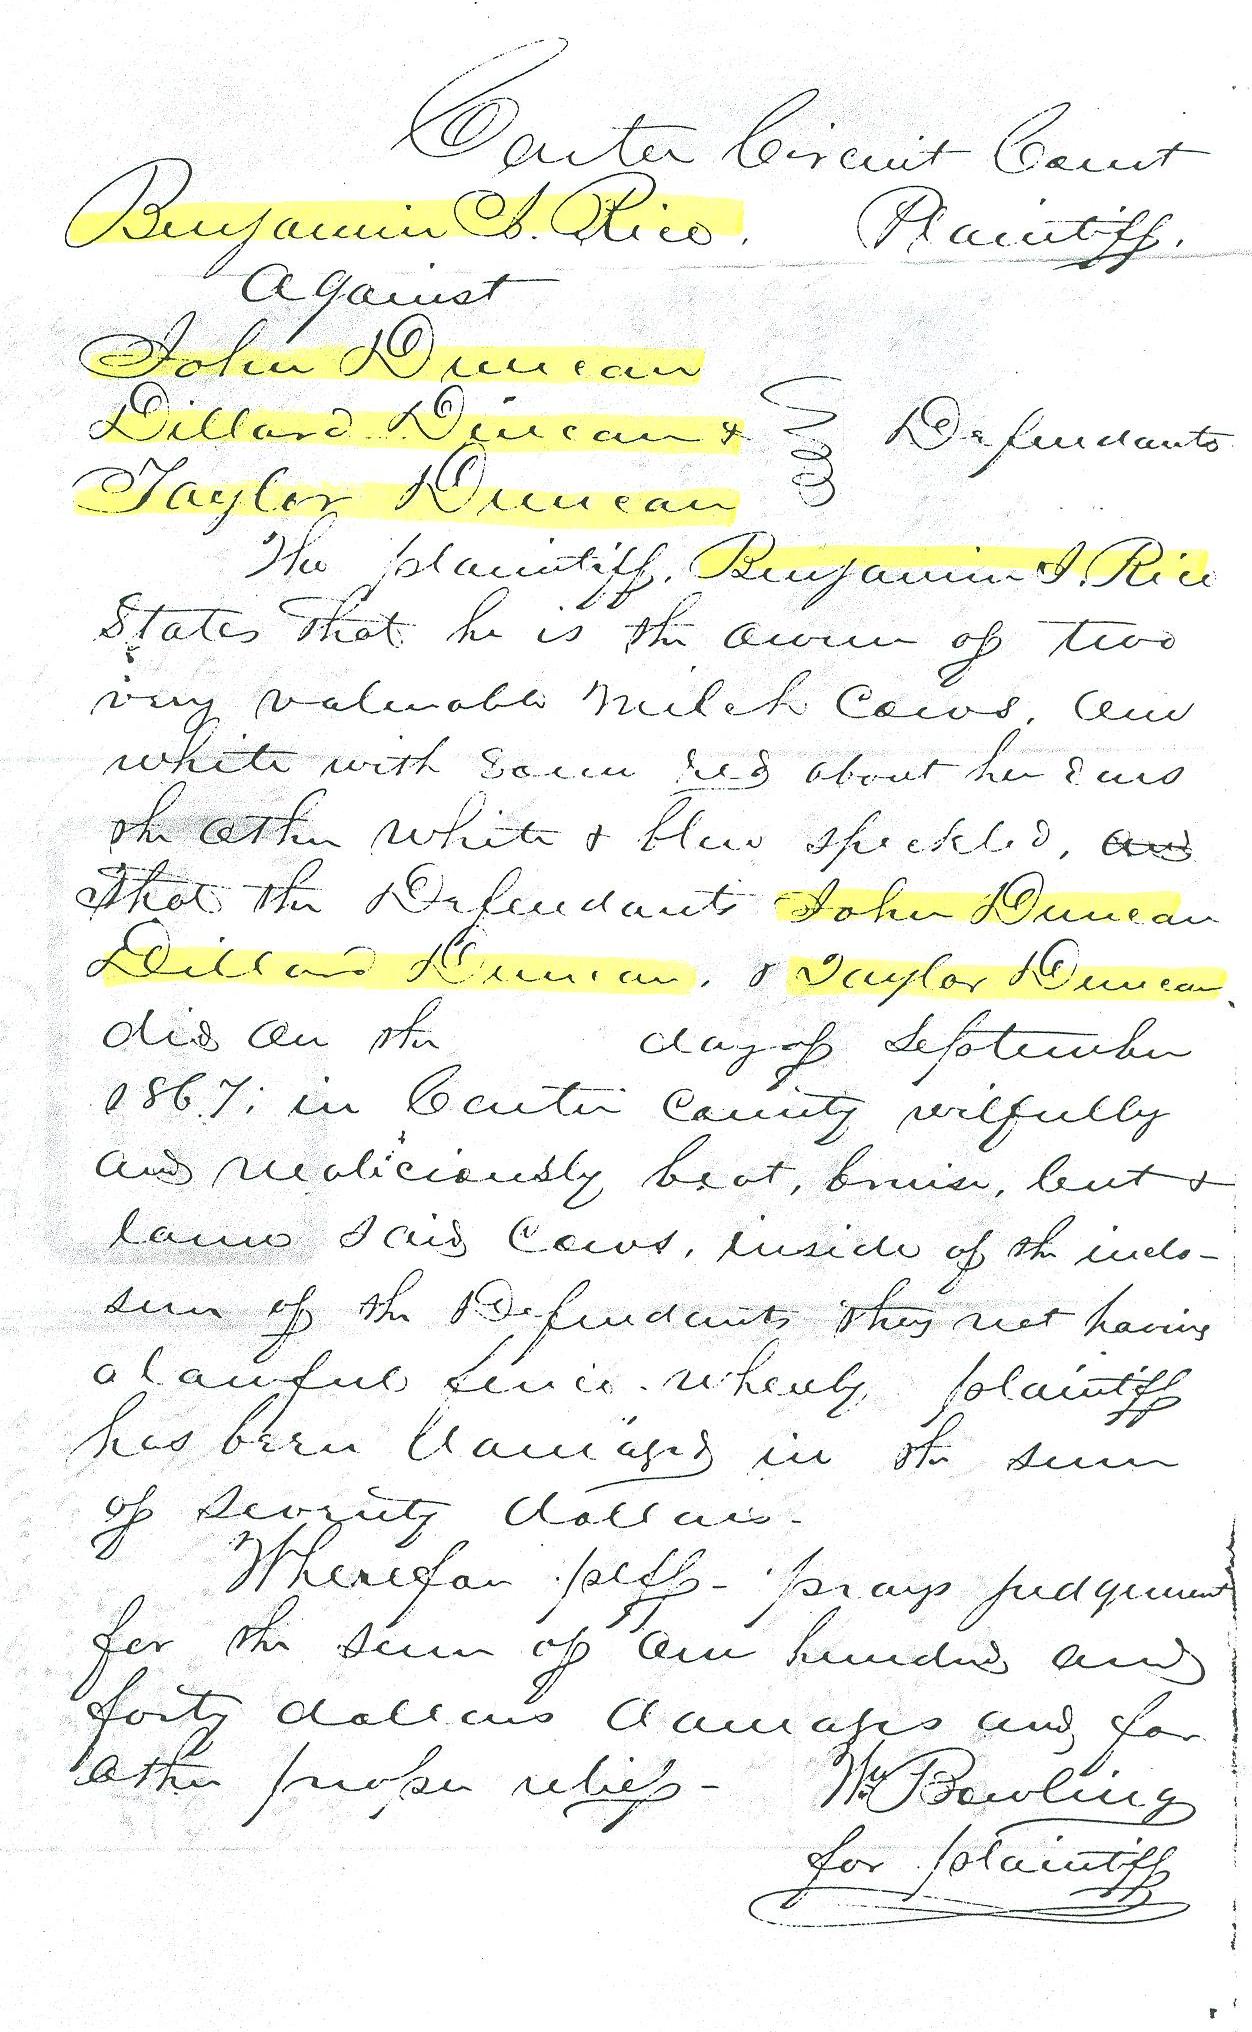 Carter Circuit Court
Benjamin S. Rice. Plaintiff.
Against
John Duncan
Dillard Duncan &
Defendants
Taylor Duncan
The plaintiff, Benjamin S. Rice
States that he is the owner of two
very valuable milch Cows, one
white with some red about her ears
the other white & blue speckled, and
that the Defendants John Duncan
Dillard Duncan, & Taylor Duncan,
did on the day of September
1867; in Carter County wilfully
and maliciously beat, bruise, cut &
lame said Cows, inside of the inclo-
sure of the Defendants they not having
a lawful fence. whereby plaintiff
has been damaged in the sum
of seventy dollars.
Wherefore plff - prays judgement
for the sum of one hundred and
forty dollars damages and for
other proper relief -
Bowling
for plaintiff